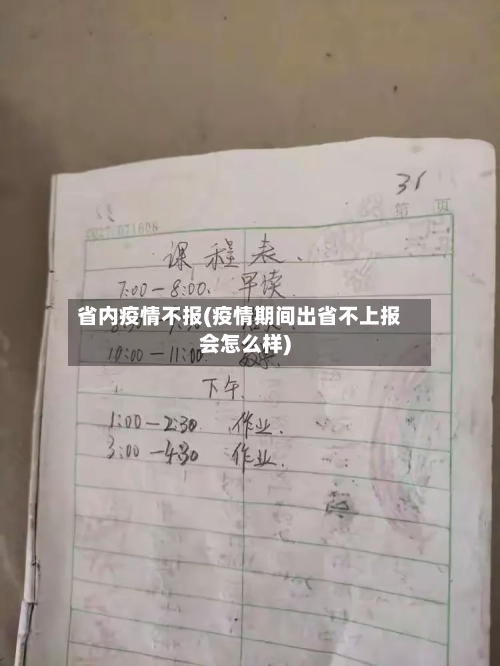 31
第 页
课程表.
7:00—8:00. 早读
省内疫情不报(疫情期间出省不上报
会怎么样)
10:00—11:00.
下午.
1:00—2:30 作业.
3:00—4:30 作业.